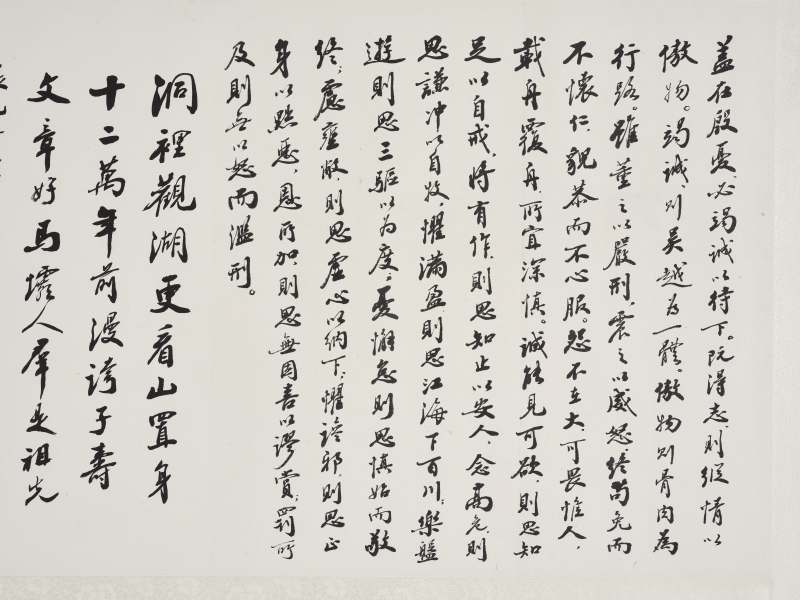 盖在殷憂必竭誠以待下。既得志則縱情以
傲物。竭誠則吳越為一體,傲物則骨肉為
行路。雖董之以嚴刑,震之以威怒,終苟免而
不懷仁,貌恭而不心服。怨不在大,可畏惟人,
載舟覆舟,所宜深慎。誠能見可欲,則思知
足以自戒,將有作,則思知止以安人,念高危,則
思謙冲以自牧,懼滿盈則思江海下百川,樂盤
遊則思三驅以為度,憂懈怠則思慎始而敬
終,慮壅蔽,則思虛心以納下,懼讒邪,則思正
身以黜惡,恩所加,則思無因喜以謬賞,罰所
及則無以怒而濫刑。
洞裡觀湖更看山置身
十二萬年前漫誇子壽
文章好馬壩人群是祖先